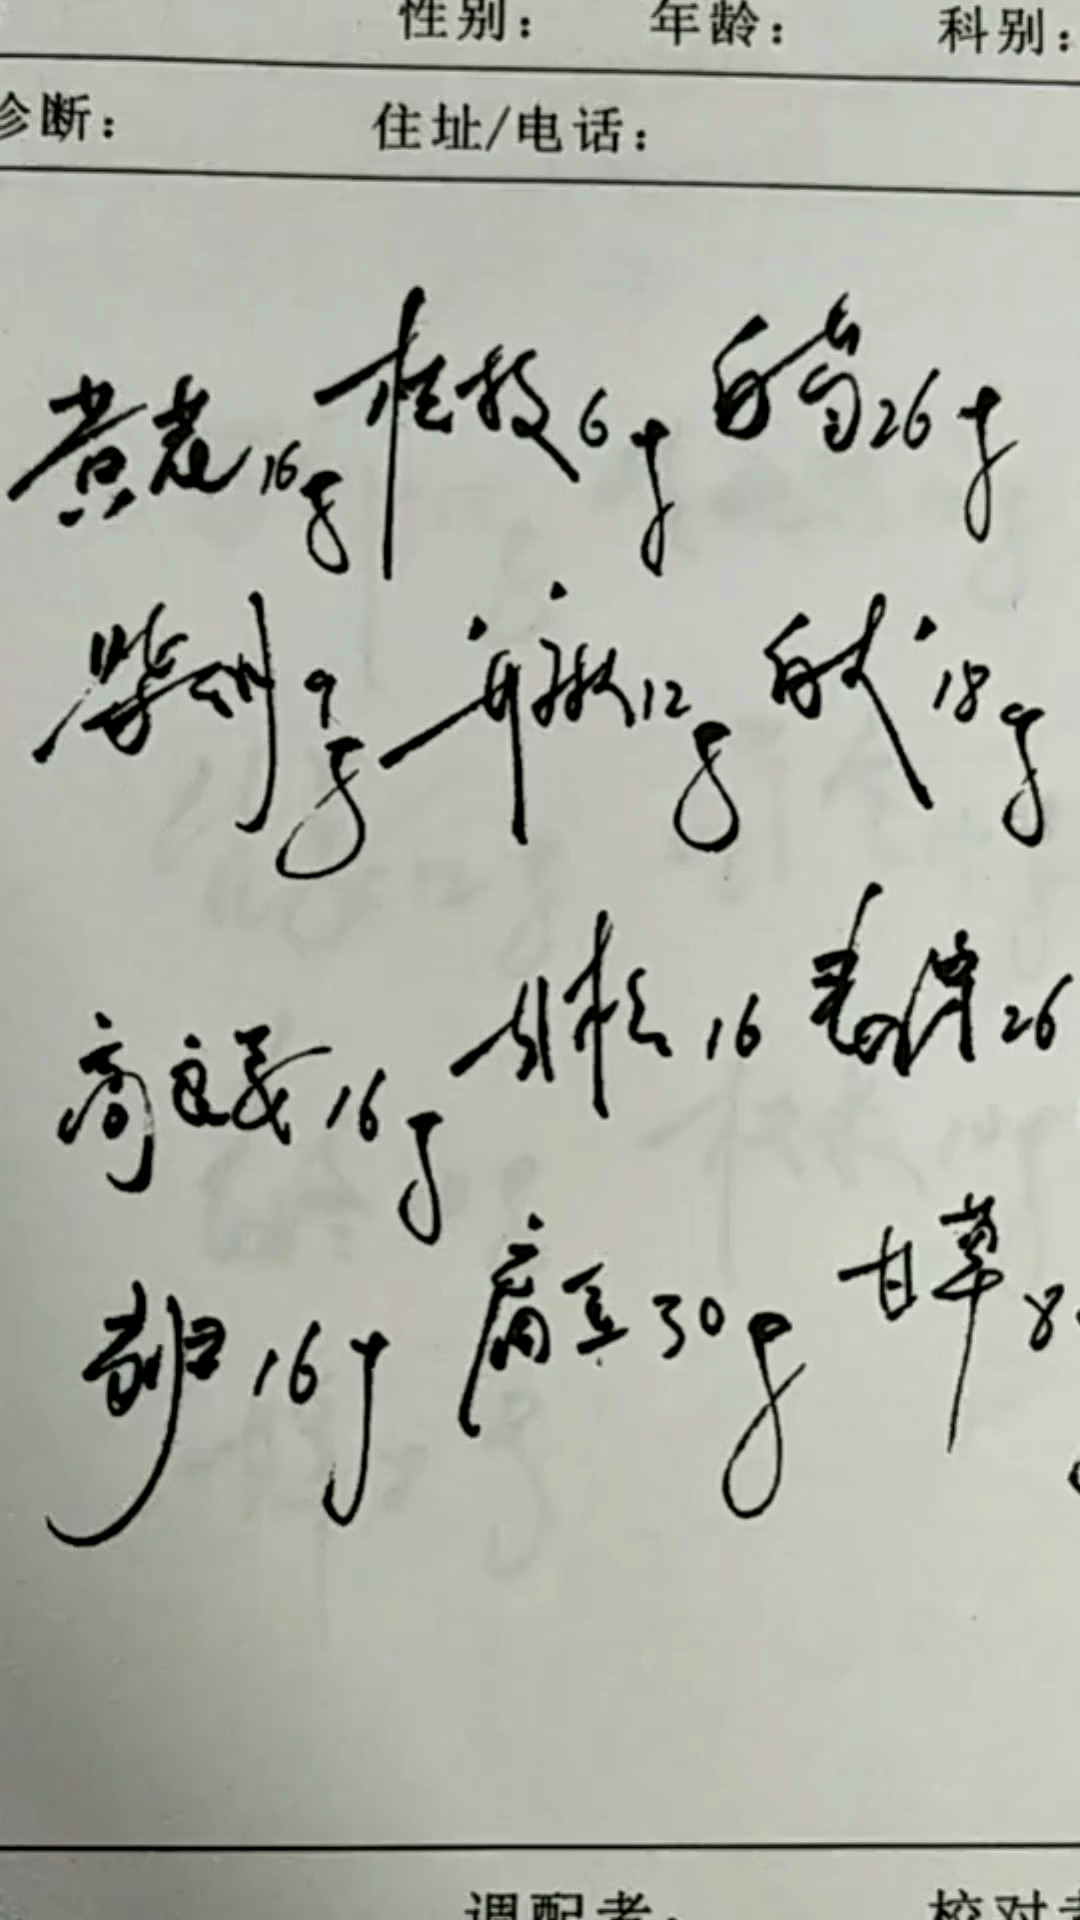 性别： 年龄： 科别：
诊断： 住址/电话：
黄芪16g 桂枝6g 白芍26g
柴胡9g 12g 白术18g
高良姜16g 16 26
当归16g 30g 甘草8
调配者： 校对者